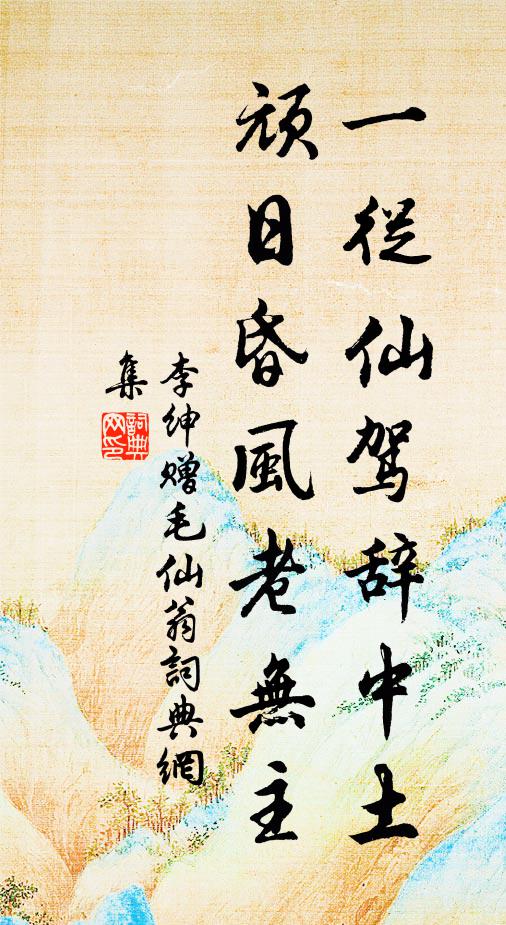 一從仙駕辞中土
頑日昏風老無主
李紳贈毛仙翁詞典網
集
詞典網印